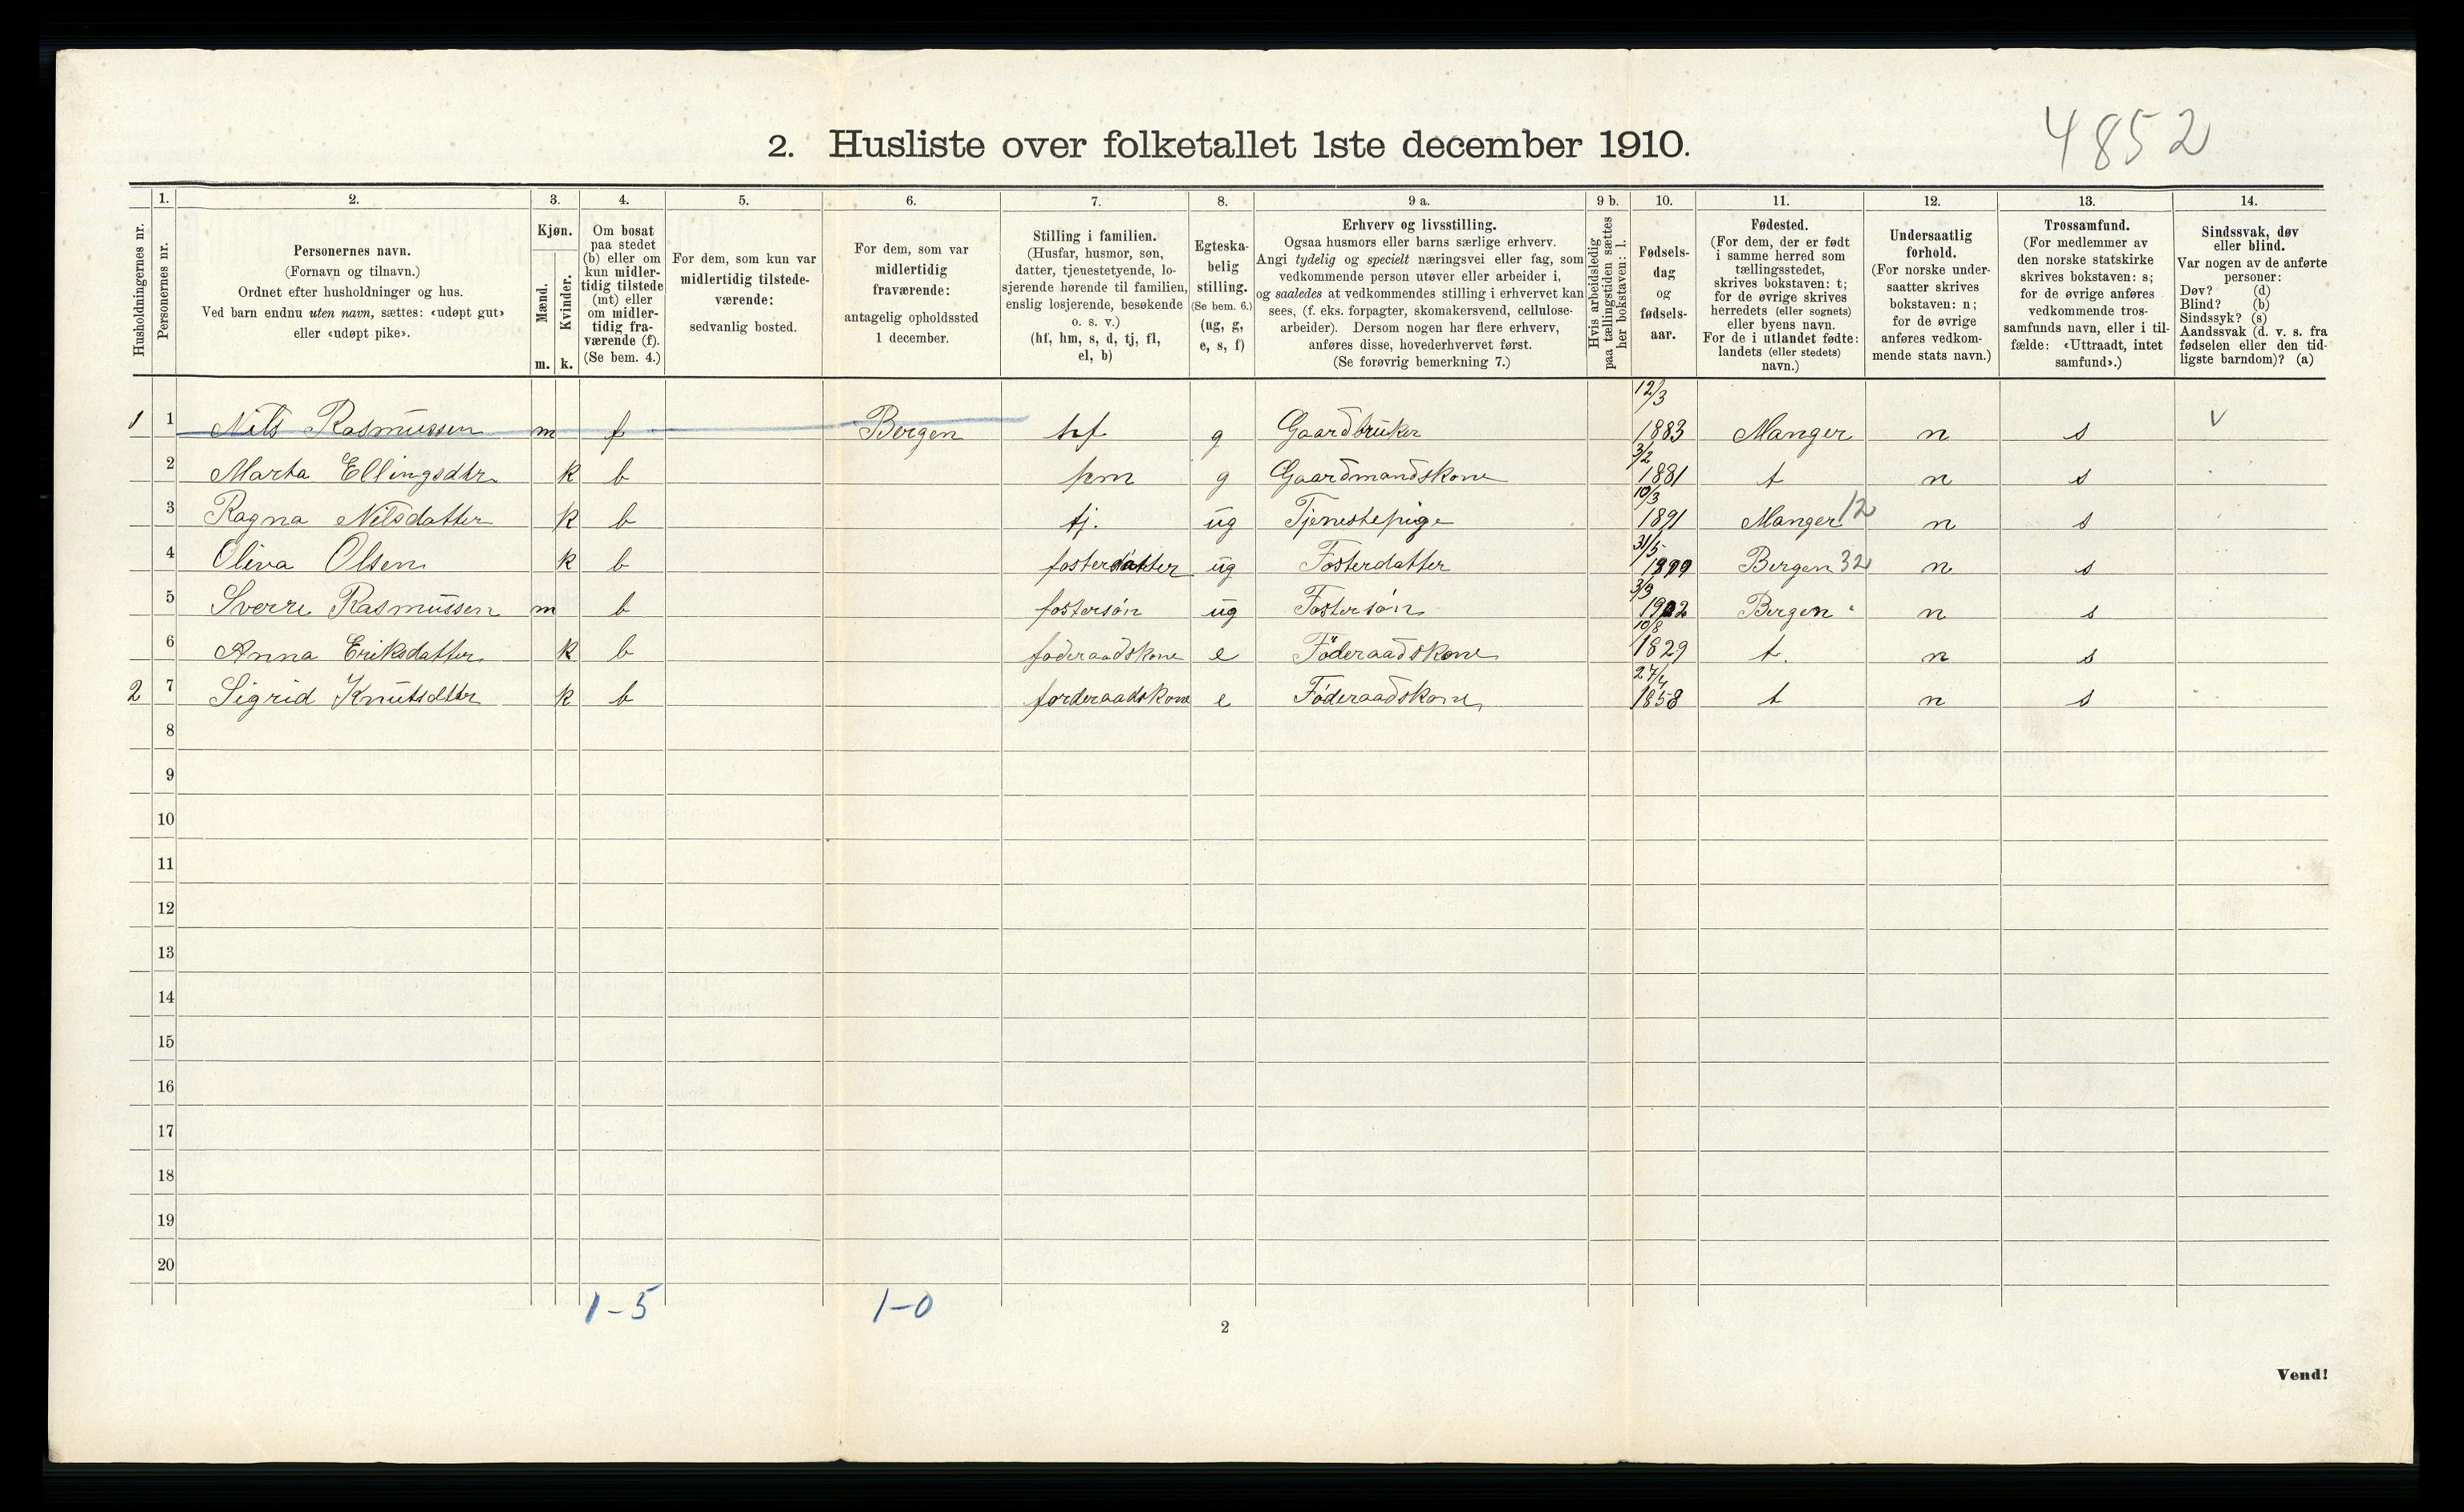 4852
2. Husliste over folketallet 1ste december 1910.
Husholdningernes nr.
1. Personernes nr.
2. Personernes navn. (Fornavn og tilnavn.) Ordnet efter husholdninger og hus. Ved barn endnu uten navn, sættes: «udøpt gut» eller «udøpt pike».
3. Kjøn. Mænd. m. Kvinder. k.
4. Om bosat paa stedet (b) eller om kun midlertidig tilstede (mt) eller om midlertidig fraværende (f). (Se bem. 4.)
5. For dem, som kun var midlertidig tilstedeværende: sedvanlig bosted.
6. For dem, som var midlertidig fraværende: antagelig opholdssted 1 december.
7. Stilling i familien. (Husfar, husmor, søn, datter, tjenestetyende, losjerende hørende til familien, enslig losjerende, besøkende o. s. v.) (hf, hm, s, d, tj, fl, el, b)
8. Egteskabelig stilling. (Se bem. 6.) (ug, g, e, s, f)
9 a. Erhverv og livsstilling. Ogsaa husmors eller barns særlige erhverv. Angi tydelig og specielt næringsvei eller fag, som vedkommende person utøver eller arbeider i, og saaledes at vedkommendes stilling i erhvervet kan sees, (f. eks. forpagter, skomakersvend, cellulosearbeider). Dersom nogen har flere erhverv, anføres disse, hovederhvervet først. (Se forøvrig bemerkning 7.)
9 b. Hvis arbeidsledig paa tællingstiden sættes her bokstaven: l.
10. Fødselsdag og fødselsaar.
11. Fødested. (For dem, der er født i samme herred som tællingsstedet, skrives bokstaven: t; for de øvrige skrives herredets (eller sognets) eller byens navn. For de i utlandet fødte: landets (eller stedets) navn.)
12. Undersaatlig forhold. (For norske undersaatter skrives bokstaven: n; for de øvrige anføres vedkommende stats navn.)
13. Trossamfund. (For medlemmer av den norske statskirke skrives bokstaven: s; for de øvrige anføres vedkommende trossamfunds navn, eller i tilfælde: «Uttraadt, intet samfund».)
14. Sindssvak, døv eller blind. Var nogen av de anførte personer: Døv? (d) Blind? (b) Sindssyk? (s) Aandssvak (d. v. s. fra fødselen eller den tidligste barndom)? (a)
1 1 Nils Rasmussen m f Bergen hf g Gaardbruker 12/3 1883 Manger n s v
2 Marta Ellingsdtr. k b hm g Gaardmandskone 3/2 1881 t n s
3 Ragna Nilsdatter k b tj. ug Tjenestepige 10/3 1891 Manger 12 n s
4 Oliva Olsen k b fosterdatter ug Fosterdatter 31/5 Bergen 32 n s
5 Sverre Rasmussen m b fostersön ug Fostersön 3/3 1902 Bergen " n s
6 Anna Eriksdatter k b føderaadskone e Föderaadskone 10/8 1829 t. n s
2 7 Sigrid Knutsdtr k b forderaadskone e Föderaadskone 27/4 1858 t n s
8
9
10
11
12
13
14
15
16
17
18
19
20
1-5 1-0
2
Vend!